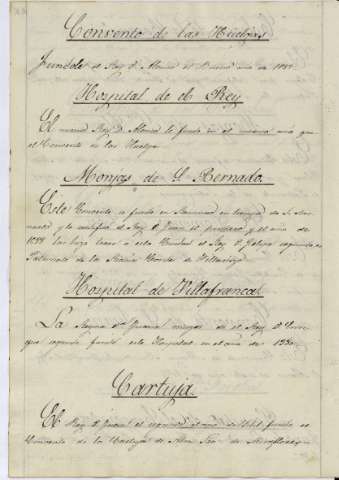 Convento de las Huelgas
Fundole el Rey D. Alonso el Bueno año de
Hospital de el Rey
El mismo Rey D. Alonso le fundo en el mismo año que
el Convento de las Huelgas
Monjas de S. Bernado.
Este Convento se fundo en tiempo de S. Ber
nardo y le el Rey D. Juan el primero y el año de
los hizo traer a esta Ciudad el Rey D. Felipe segundo
de la Reina
Hospital de Villafranca
La Reyna D.ª Juana muger de el Rey D. Enrri
que segundo fundo este Hospital en el año de 1380
Cartuja.
El Rey D. Juan el segundo el año de 1441 fundo el
Convento de la Cartuja de de Miraflores